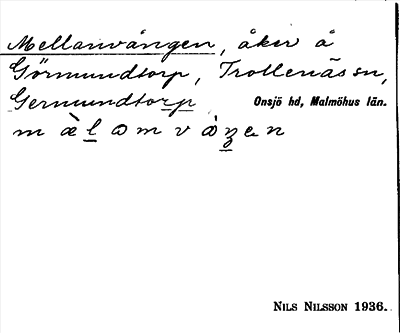 Mellanvången, åker å
Görmundtorp, Trollenäs sn,
Germundtorp Onsjö hd, Malmöhus län.
m à l a m v å ŋ e n
NILS NILSSON 1936.